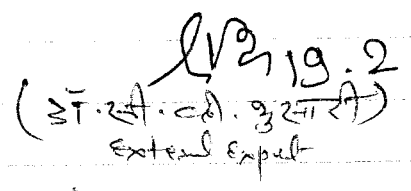 19.2
(डॉ. सी. व्ही. भुसारी)
External Expert